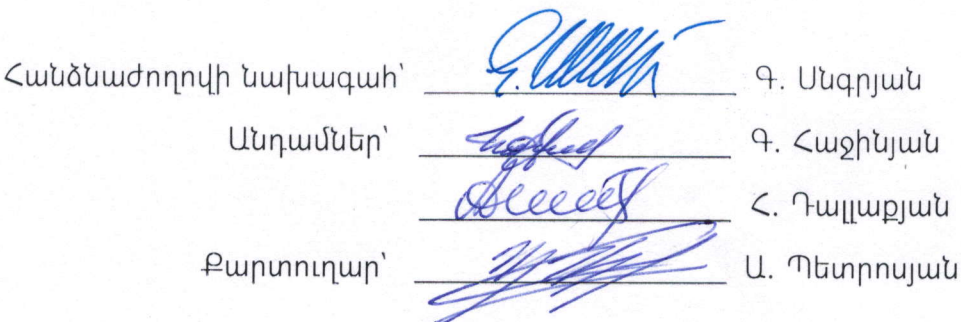 Հանձնաժողովի նախագահ՝ Գ. Սնգրյան
Անդամներ՝ Գ. Հաջինյան
Հ. Դալլաքյան
Քարտուղար՝ Ա. Պետրոսյան